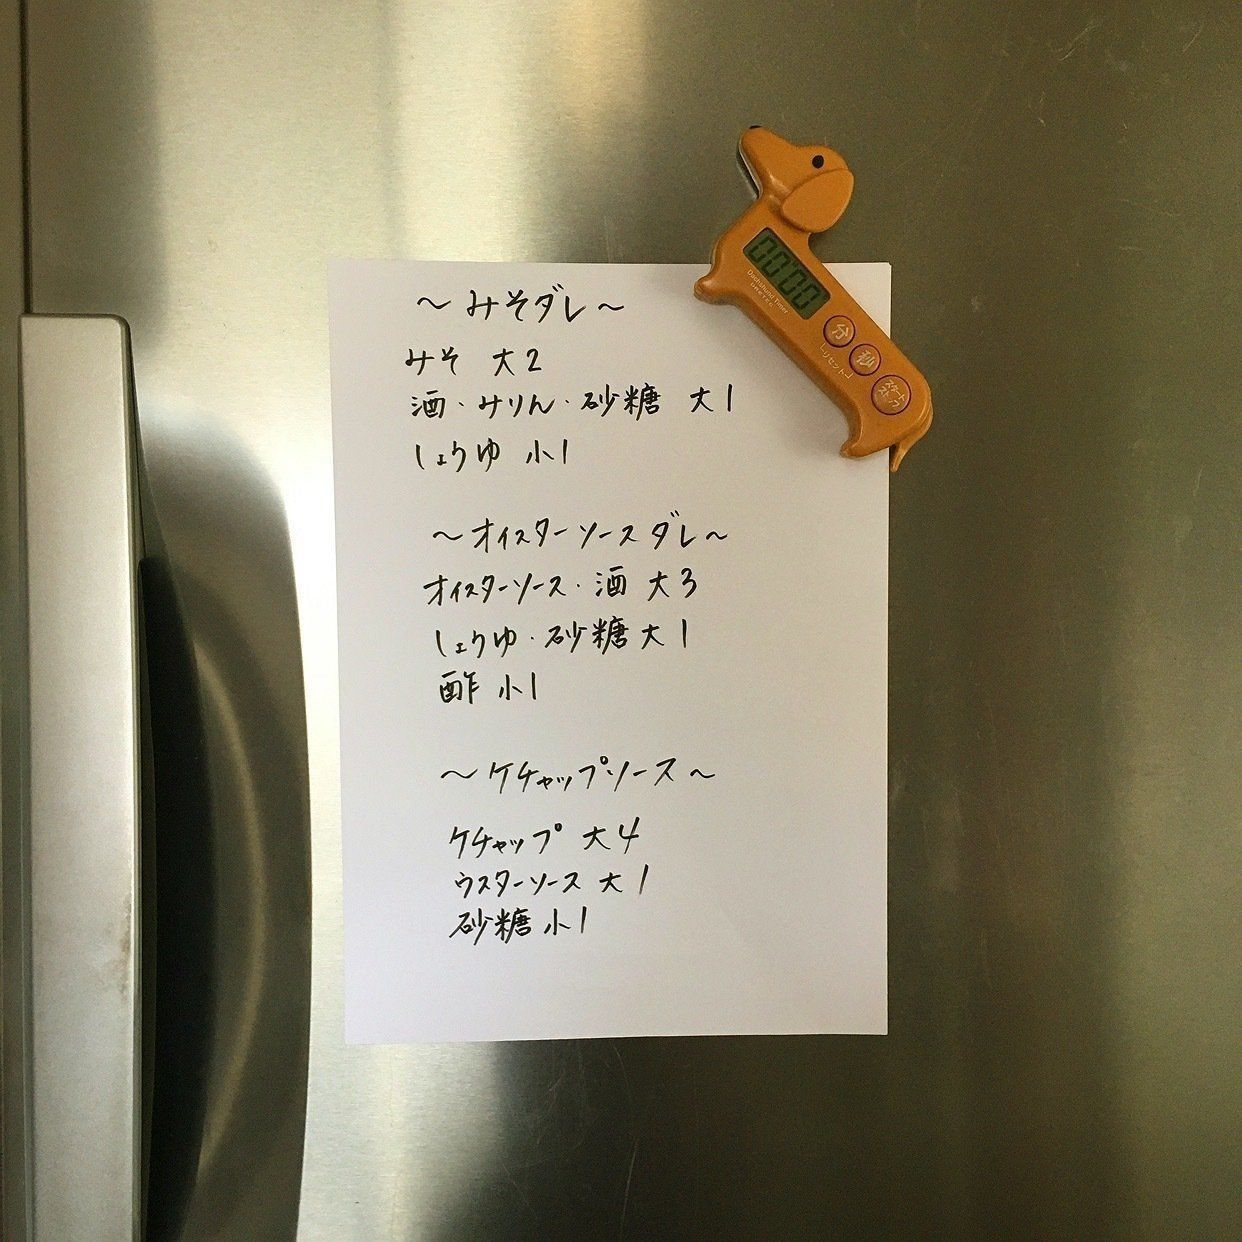 ～みそダレ～
みそ 大2
酒・みりん・砂糖 大1
しょうゆ 小1
～オイスターソースダレ～
オイスターソース・酒 大3
しょうゆ・砂糖 大1
酢 小1
～ケチャップソース～
ケチャップ 大4
ウスターソース 大1
砂糖 小1
00:00
Dachshund Timer
DRETEC
分
秒
リセット
スタート
ストップ